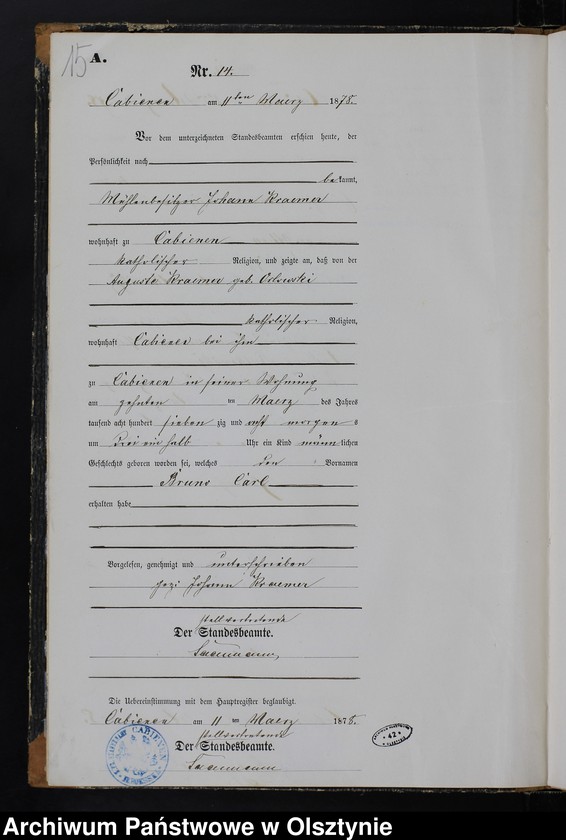 15 A.
Nr. 14.
Cabienen am 11ten Maerz 1878.
Vor dem unterzeichneten Standesbeamten erschien heute, der
Persönlichkeit nach
bekannt,
Mühlenbesitzer Johann Kraemer
wohnhaft zu Cabienen
katholischer Religion, und zeigte an, daß von der
Auguste Kraemer geb.
katholischer Religion,
wohnhaft Cabienen bei ihm
zu Cabienen in seiner Wohnung
am zehnten ten Maerz des Jahres
tausend acht hundert sieben zig und acht morgens
um drei ein halb Uhr ein Kind männlichen
Geschlechts geboren worden sei, welches den Vornamen
Bruno Carl
erhalten habe
Vorgelesen, genehmigt und unterschrieben
gez: Johann Kraemer
stellvertretende
Der Standesbeamte.
Die Uebereinstimmung mit dem Hauptregister beglaubigt.
Cabienen am 11 ten Maerz 1878.
stellvertretende
Der Standesbeamte.
CABIENEN
42
Archiwum Państwowe w Olsztynie